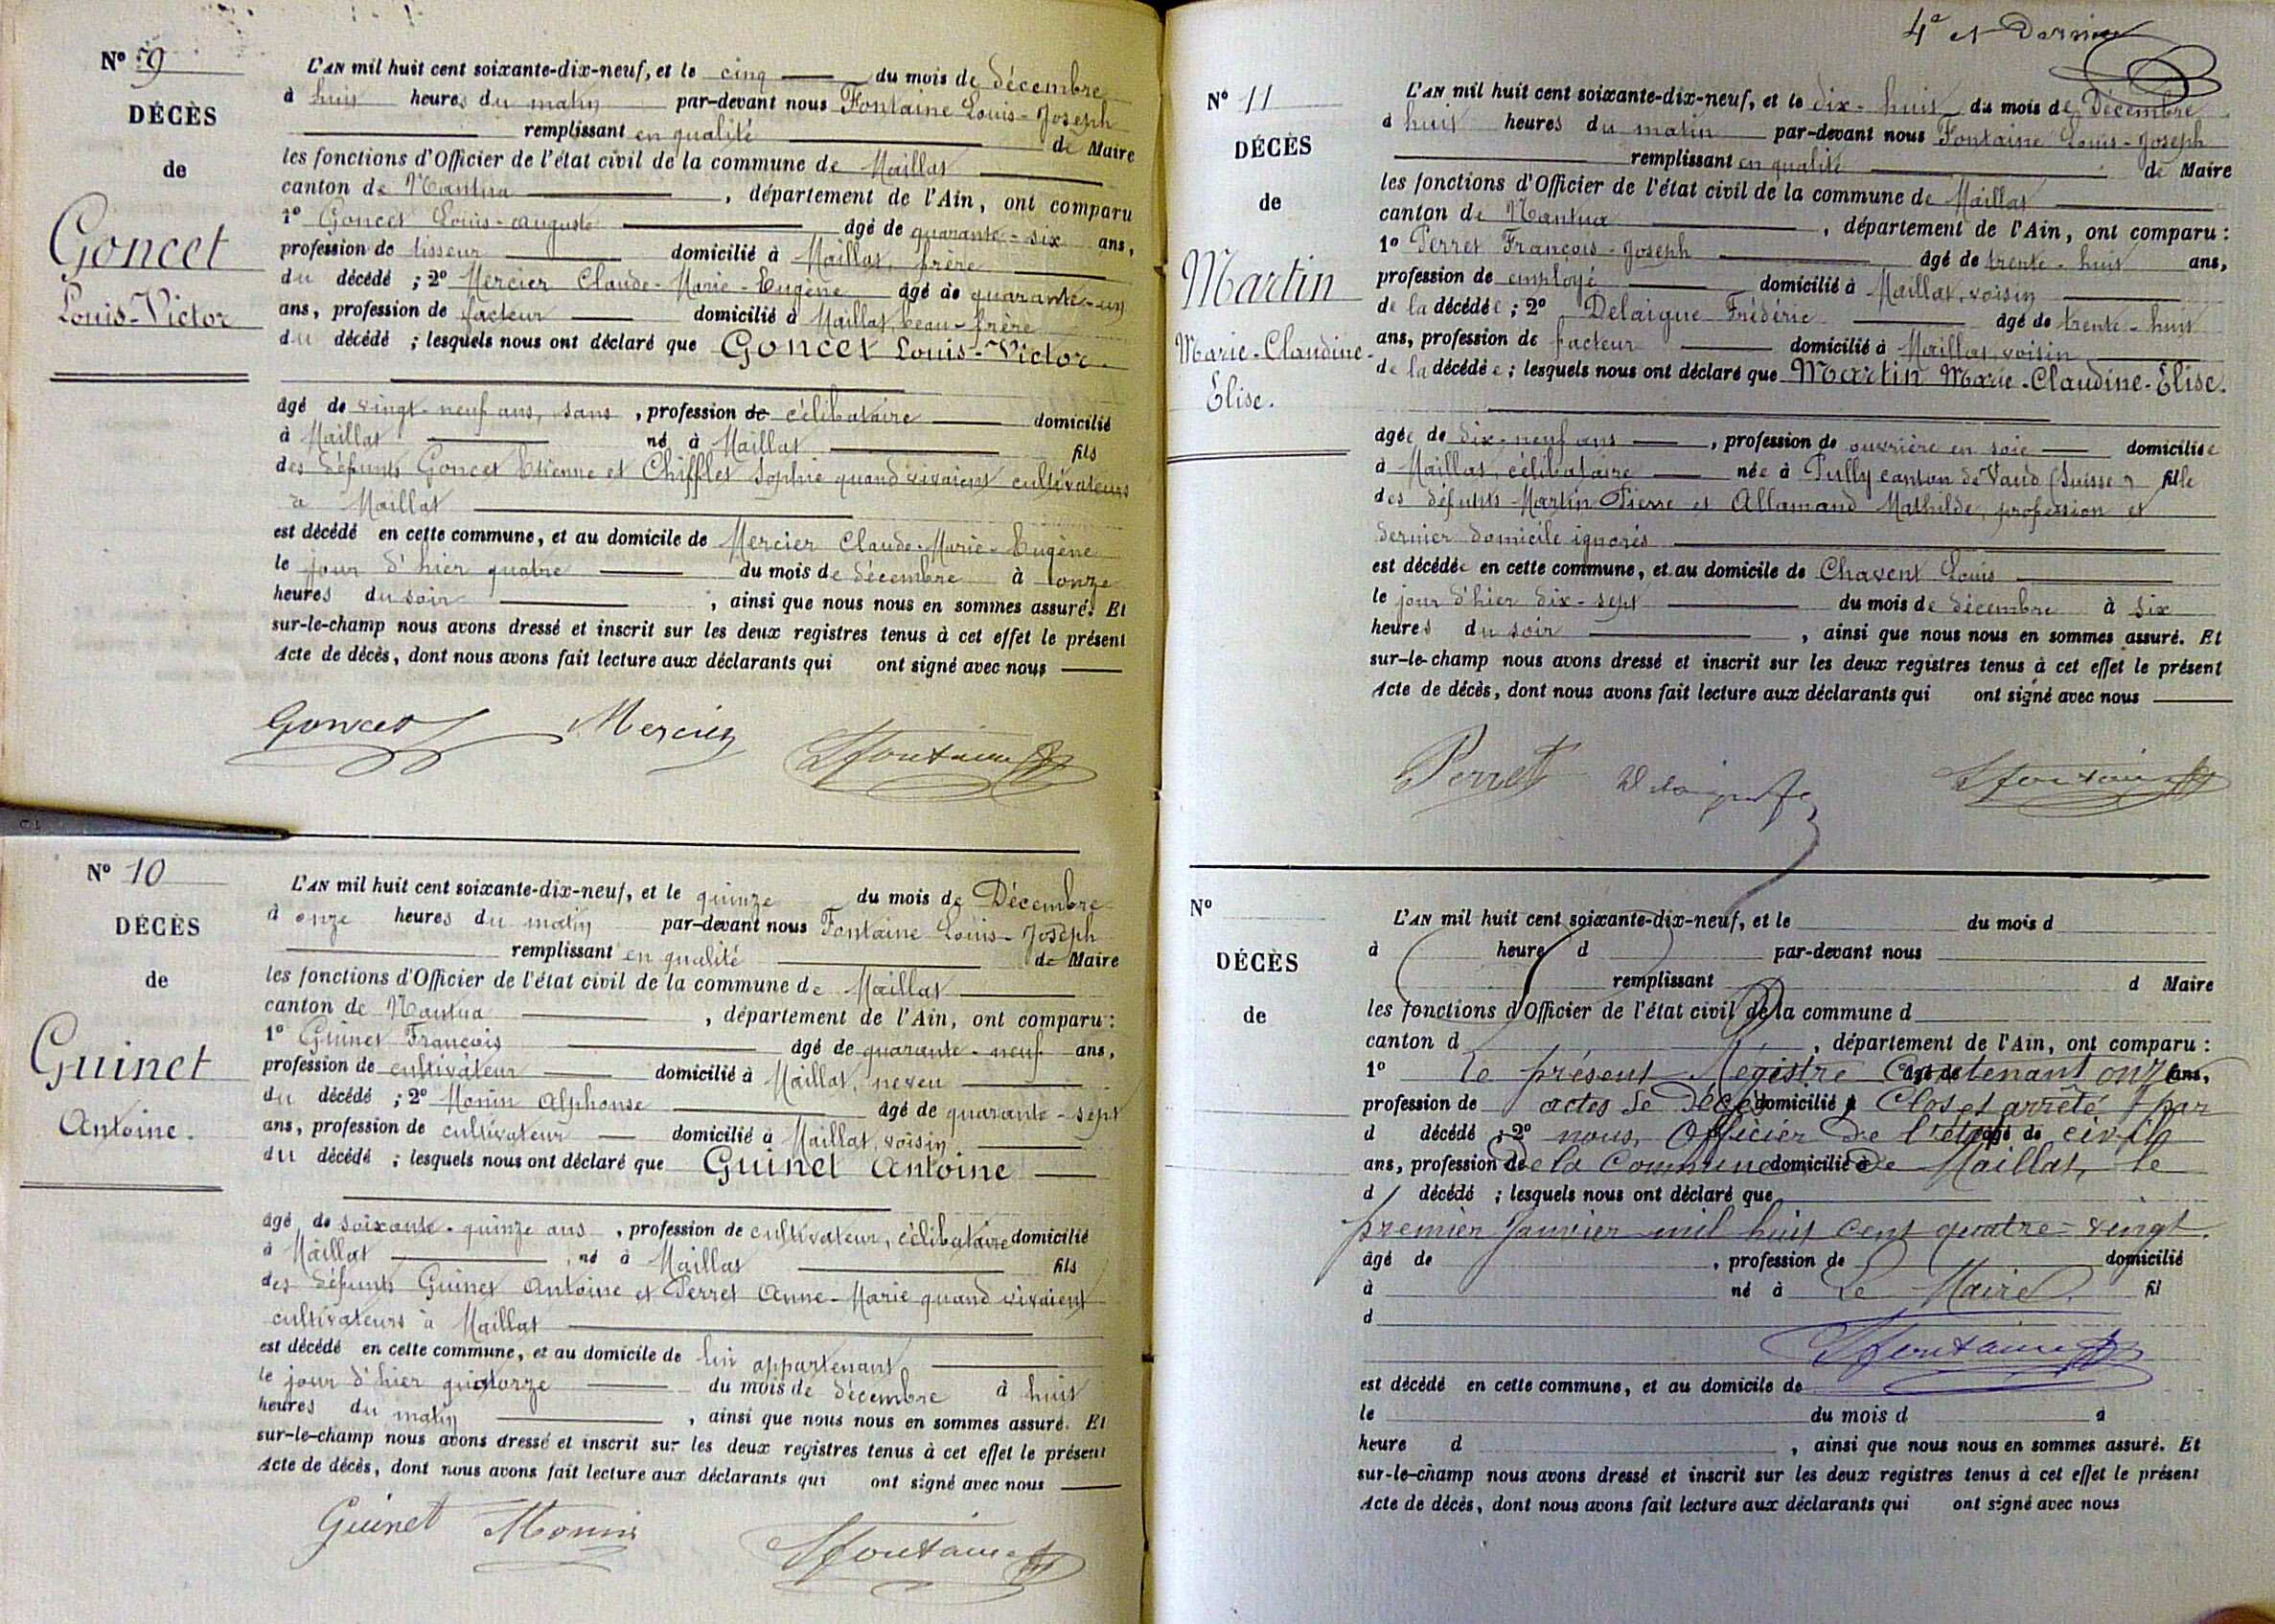 Nº 9
DÉCÈS
de
Goncet
Louis-Victor
L'AN mil huit cent soixante-dix-neuf, et le cinq du mois de décembre
à huit heures du matin par-devant nous Fontaine Louis-Joseph
remplissant en qualité de Maire
les fonctions d'Officier de l'état civil de la commune de Maillat
canton de Nantua , département de l'Ain, ont comparu
1º Goncet Louis-auguste âgé de quarante-six ans,
profession de tisseur domicilié à Maillat, frère
du décédé ; 2º Mercier Claude-Marie-Eugène âgé de quarante-un
ans, profession de facteur domicilié à Maillat, beau-frère
du décédé ; lesquels nous ont déclaré que Goncet Louis-Victor.
âgé de vingt-neuf ans, sans , profession de célibataire domicilié
à Maillat né à Maillat fils
des défunts Goncet Etienne et Chifflet Sophie quand vivaient cultivateurs
à Maillat
est décédé en cette commune, et au domicile de Mercier Claude-Marie-Eugène
le jour d'hier quatre du mois de décembre à onze
heures du soir , ainsi que nous nous en sommes assuré. Et
sur-le-champ nous avons dressé et inscrit sur les deux registres tenus à cet effet le présent
Acte de décès, dont nous avons fait lecture aux déclarants qui ont signé avec nous
Goncet Mercier Lfontaine
Nº 10
DÉCÈS
de
Guinet
Antoine.
L'AN mil huit cent soixante-dix-neuf, et le quinze du mois de Décembre
à onze heures du matin par-devant nous Fontaine Louis-Joseph
remplissant en qualité de Maire
les fonctions d'Officier de l'état civil de la commune de Maillat
canton de Nantua , département de l'Ain, ont comparu :
1º Guinet François âgé de quarante-neuf ans,
profession de cultivateur domicilié à Maillat, neveu
du décédé ; 2º Monin Alphonse âgé de quarante-sept
ans, profession de cultivateur domicilié à Maillat, voisin
du décédé ; lesquels nous ont déclaré que Guinet Antoine
âgé de soixante-quinze ans , profession de cultivateur, célibataire domicilié
à Maillat , né à Maillat fils
des défunts Guinet Antoine et Perret Anne-Marie quand vivaient
cultivateurs à Maillat
est décédé en cette commune, et au domicile de lui appartenant
le jour d'hier quatorze du mois de décembre à huit
heures du matin , ainsi que nous nous en sommes assuré. Et
sur-le-champ nous avons dressé et inscrit sur les deux registres tenus à cet effet le présent
Acte de décès, dont nous avons fait lecture aux déclarants qui ont signé avec nous
Guinet Monin Lfontaine
4e et Dernier
Nº 11
DÉCÈS
de
Martin
Marie-Claudine-
Élise.
L'AN mil huit cent soixante-dix-neuf, et le dix-huit du mois de Décembre
à huit heures du matin par-devant nous Fontaine Louis-Joseph
remplissant en qualité de Maire
les fonctions d'Officier de l'état civil de la commune de Maillat
canton de Nantua , département de l'Ain, ont comparu :
1º Perret François-Joseph âgé de trente-huit ans,
profession de employé domicilié à Maillat, voisin
de la décédée ; 2º Delaigue Frédéric âgé de trente-huit
ans, profession de facteur domicilié à Maillat, voisin
de la décédée ; lesquels nous ont déclaré que Martin Marie-Claudine-Élise.
âgée de dix-neuf ans , profession de ouvrière en soie domiciliée
à Maillat, célibataire née à Pully canton de Vaud (Suisse) fille
des défunts Martin Pierre et Allamand Mathilde, profession et
dernier domicile ignorés
est décédée en cette commune, et au domicile de Chavent Louis
le jour d'hier dix-sept du mois de décembre à six
heures du soir , ainsi que nous nous en sommes assuré. Et
sur-le-champ nous avons dressé et inscrit sur les deux registres tenus à cet effet le présent
Acte de décès, dont nous avons fait lecture aux déclarants qui ont signé avec nous
Perret Lfontaine
Nº
DÉCÈS
de
L'AN mil huit cent soixante-dix-neuf, et le du mois d
à heure d par-devant nous
remplissant d Maire
les fonctions d'Officier de l'état civil de la commune d
canton d , département de l'Ain, ont comparu :
1º Le présent Régistre Contenant onze âgé de ans,
profession de actes de Décès domicilié à Clos et arrêté par
d décédé ; 2º nous, Officier de l'état âgé de civile
ans, profession de de la Commune domicilié à de Maillat, le
d décédé ; lesquels nous ont déclaré que
premier Janvier mil huit cent quatre-vingt.
âgé de , profession de domicilié
à né à Le Maire. fil
d
Lfontaine
est décédé en cette commune, et au domicile de
le du mois d à
heure d , ainsi que nous nous en sommes assuré. Et
sur-le-champ nous avons dressé et inscrit sur les deux registres tenus à cet effet le présent
Acte de décès, dont nous avons fait lecture aux déclarants qui ont signé avec nous